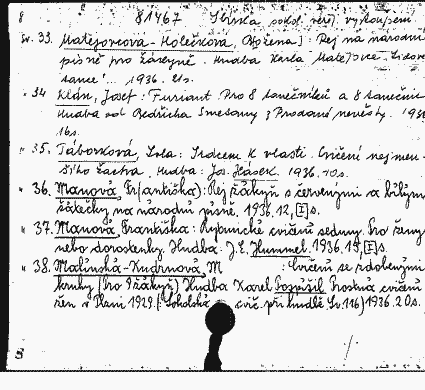 8 81467 Sbírka sokol. veřej. vystoupení
sv. 33. Matějovcová-Holečková, Božena: Rej na národní
písně pro žákyně. Hudba Karla Matějovce. Lidové
tance! ... 1936. 21s.
" 34 Klán, Josef: Furiant. Pro 8 tanečníků a 8 tanečnic
Hudba od Bedřicha Smetany z Prodané nevěsty. 193
16s.
" 35. Táborková, Lola: Srdcem k vlasti. Cvičení nejmen-
šího žactva. Hudba: Jos. Hásek. 1936. 10s.
" 36. Manová, Fr(antiška): Rej žákyň s červenými a bílými
šátečky na národní písně. 1936. 12, [I] s.
" 37. Manová, Františka: Rytmické cvičení sedmy. Pro ženy
nebo dorostenky. Hudba J.E. Hummel. 1936. 15, [I] s.
" 38. Malinská-Kudrnová, M : Cvičení se zdobenými
kruhy (Pro žákyně) Hudba Karel Pospíšil Prostná cvičení
žen v Plzni 1929. (: Sokolská cvič. při hudbě Sv. 116) 1936. 20s.